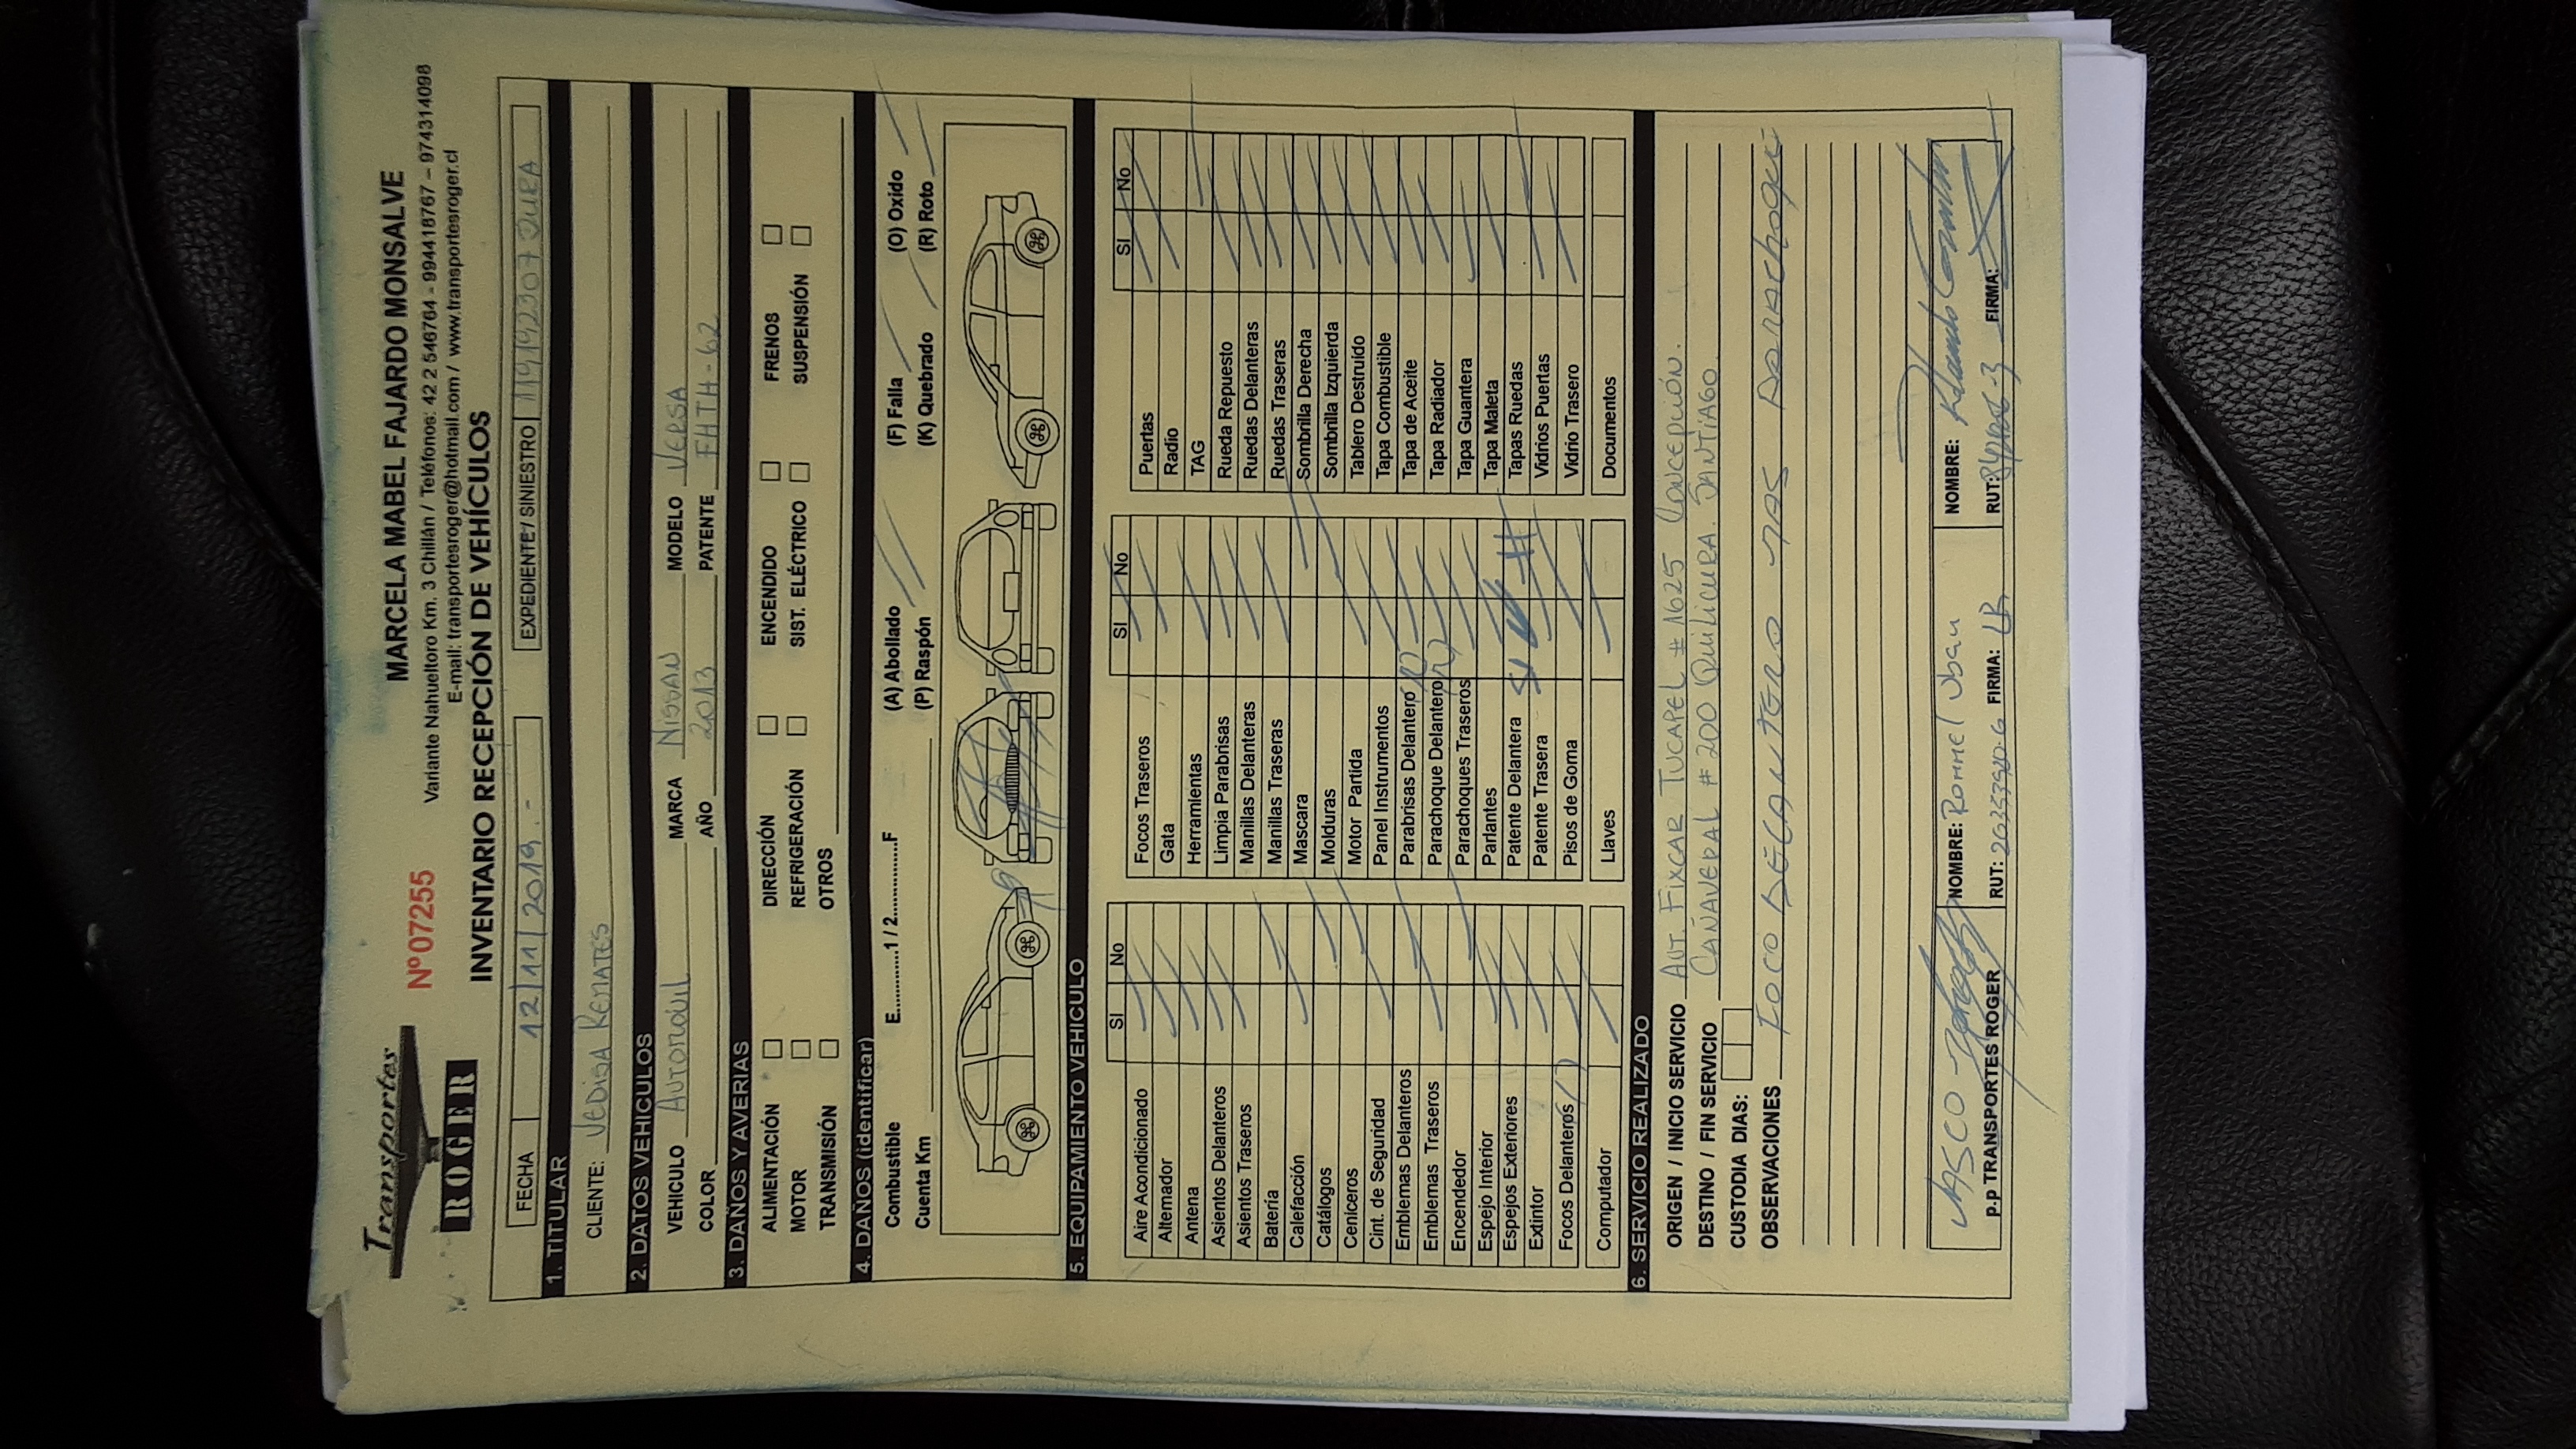 Transportes
ROGER
Nº 07255
MARCELA MABEL FAJARDO MONSALVE
Variante Nahueltoro Km. 3 Chillán / Teléfonos: 42 2 546764 - 994418767 – 974314098
E-mail: transportesroger@hotmail.com / www.transportesroger.cl
INVENTARIO RECEPCIÓN DE VEHÍCULOS
FECHA 12/11/2019.- EXPEDIENTE / SINIESTRO
1. TITULAR
CLIENTE: VEDISA REMATES
2. DATOS VEHICULOS
VEHICULO AUTOMÓVIL MARCA NISSAN MODELO VERSA
COLOR AÑO 2013 PATENTE FHTH-62
3. DAÑOS Y AVERIAS
ALIMENTACIÓN DIRECCIÓN ENCENDIDO FRENOS
MOTOR REFRIGERACIÓN SIST. ELÉCTRICO SUSPENSIÓN
TRANSMISIÓN OTROS
4. DAÑOS (identificar)
Combustible E............1 / 2..............F (A) Abollado (F) Falla (O) Oxido
Cuenta Km (P) Raspón (K) Quebrado (R) Roto
5. EQUIPAMIENTO VEHICULO
SI No SI No SI No
Aire Acondicionado Focos Traseros Puertas
Alternador Gata Radio
Antena Herramientas TAG
Asientos Delanteros Limpia Parabrisas Rueda Repuesto
Asientos Traseros Manillas Delanteras Ruedas Delanteras
Batería Manillas Traseras Ruedas Traseras
Calefacción Mascara Sombrilla Derecha
Catálogos Molduras Sombrilla Izquierda
Ceniceros Motor Partida Tablero Destruído
Cint. de Seguridad Panel Instrumentos Tapa Combustible
Emblemas Delanteros Parabrisas Delantero Tapa de Aceite
Emblemas Traseros Parachoque Delantero Tapa Radiador
Encendedor Parachoques Traseros Tapa Guantera
Espejo Interior Parlantes Tapa Maleta
Espejos Exteriores Patente Delantera SI Tapas Ruedas
Extintor Patente Trasera Vidrios Puertas
Focos Delanteros Pisos de Goma Vidrio Trasero
Computador Llaves Documentos
6. SERVICIO REALIZADO
ORIGEN / INICIO SERVICIO AUT. FIXCAR TUCAPEL # 1625 CONCEPCIÓN.
DESTINO / FIN SERVICIO CAÑAVERAL # 200 QUILICURA. SANTIAGO
CUSTODIA DIAS:
OBSERVACIONES FOCO DELANTERO MAS PARACHOQUE
VASCO
p.p TRANSPORTES ROGER
NOMBRE: Rommel
RUT: FIRMA:
NOMBRE:
RUT: FIRMA: